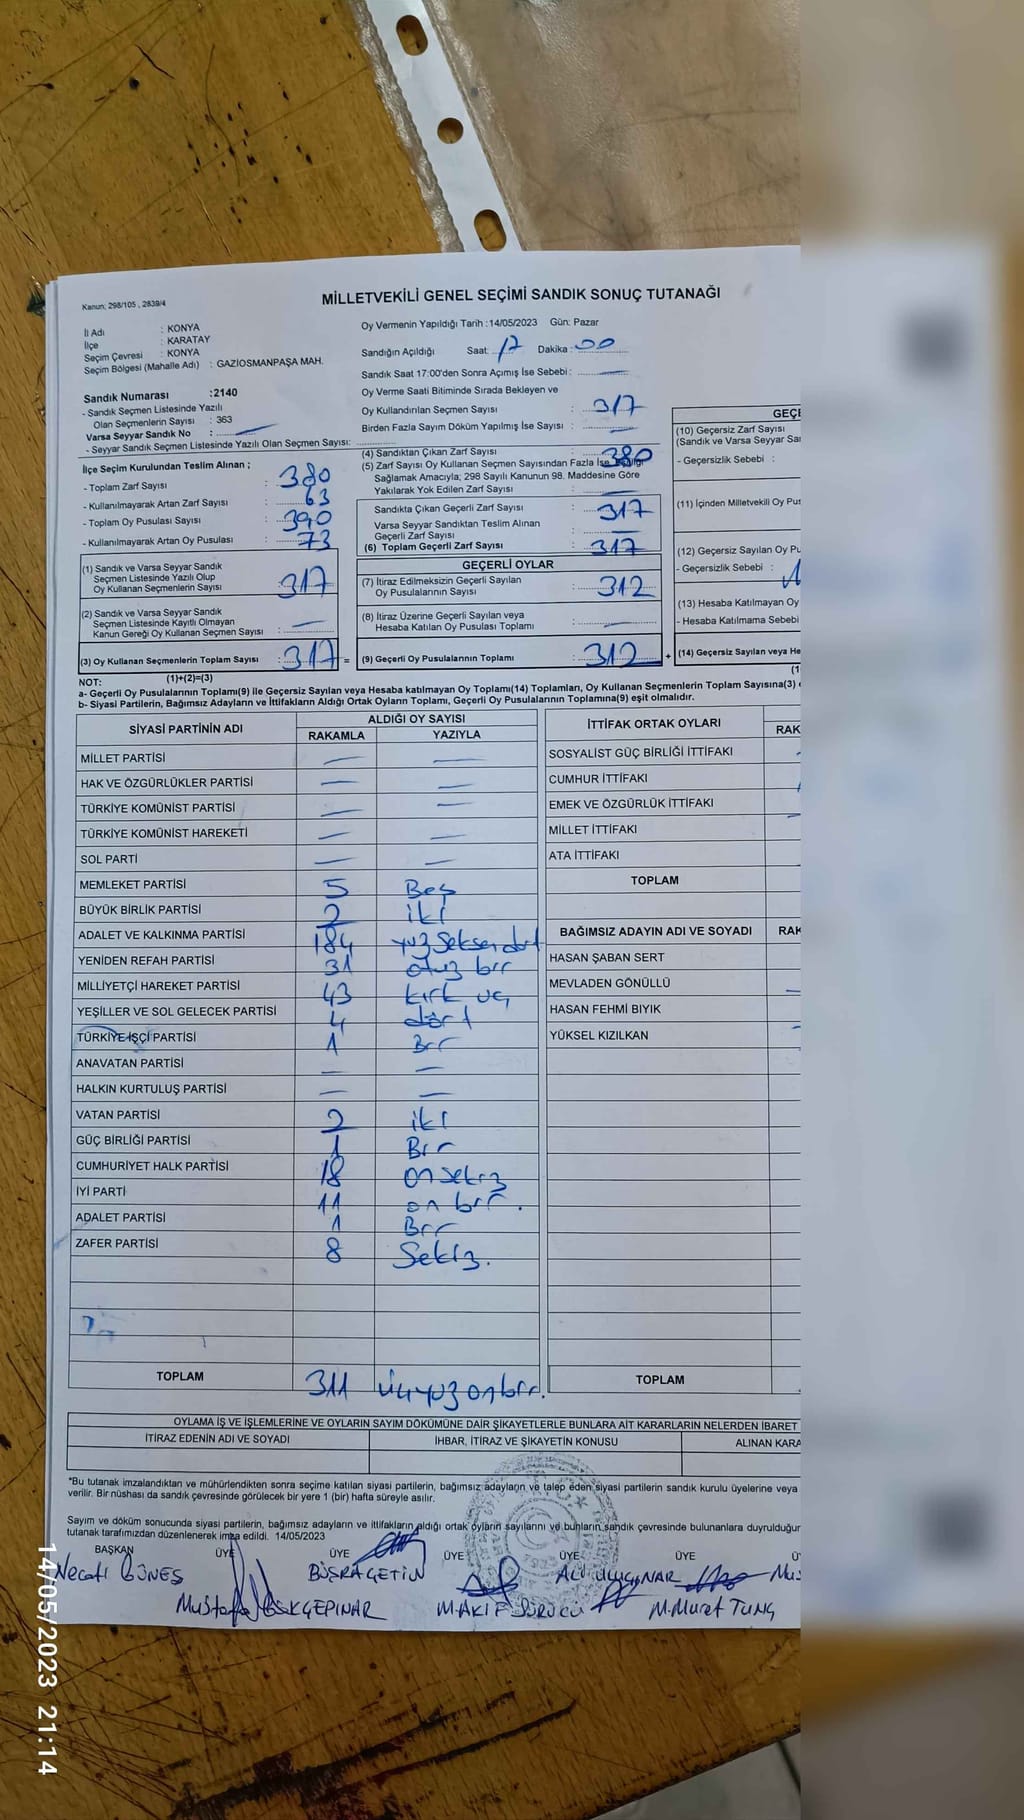 Kanun: 298/105 , 2839/4
MİLLETVEKİLİ GENEL SEÇİMİ SANDIK SONUÇ TUTANAĞI
İl Adı : KONYA
İlçe : KARATAY
Seçim Çevresi : KONYA
Seçim Bölgesi (Mahalle Adı) : GAZİOSMANPAŞA MAH.
Sandık Numarası :2140
- Sandık Seçmen Listesinde Yazılı
Olan Seçmenlerin Sayısı : 363
Varsa Seyyar Sandık No :
- Seyyar Sandık Seçmen Listesinde Yazılı Olan Seçmen Sayısı:
İlçe Seçim Kurulundan Teslim Alınan ;
- Toplam Zarf Sayısı : 380
- Kullanılmayarak Artan Zarf Sayısı : 63
- Toplam Oy Pusulası Sayısı : 390
- Kullanılmayarak Artan Oy Pusulası : 73
(1) Sandık ve Varsa Seyyar Sandık
Seçmen Listesinde Yazılı Olup
Oy Kullanan Seçmenlerin Sayısı : 317
(2) Sandık ve Varsa Seyyar Sandık
Seçmen Listesinde Kayıtlı Olmayan
Kanun Gereği Oy Kullanan Seçmen Sayısı : —
(3) Oy Kullanan Seçmenlerin Toplam Sayısı : 317 =
(1)+(2)=(3)
Oy Vermenin Yapıldığı Tarih :14/05/2023 Gün: Pazar
Sandığın Açıldığı Saat: 17 Dakika : 00
Sandık Saat 17:00'den Sonra Açımış İse Sebebi : —
Oy Verme Saati Bitiminde Sırada Bekleyen ve
Oy Kullandırılan Seçmen Sayısı : 317
Birden Fazla Sayım Döküm Yapılmış İse Sayısı : —
(4) Sandıktan Çıkan Zarf Sayısı : 380
(5) Zarf Sayısı Oy Kullanan Seçmen Sayısından Fazla İse
Sağlamak Amacıyla; 298 Sayılı Kanunun 98. Maddesine Göre
Yakılarak Yok Edilen Zarf Sayısı : —
Sandıkta Çıkan Geçerli Zarf Sayısı : 317
Varsa Seyyar Sandıktan Teslim Alınan
Geçerli Zarf Sayısı : —
(6) Toplam Geçerli Zarf Sayısı : 317
GEÇERLİ OYLAR
(7) İtiraz Edilmeksizin Geçerli Sayılan
Oy Pusulalarının Sayısı : 312
(8) İtiraz Üzerine Geçerli Sayılan veya
Hesaba Katılan Oy Pusulası Toplamı : —
(9) Geçerli Oy Pusulalarının Toplamı : 312 +
GEÇE
(10) Geçersiz Zarf Sayısı
(Sandık ve Varsa Seyyar Sa
- Geçersizlik Sebebi :
(11) İçinden Milletvekili Oy Pus
(12) Geçersiz Sayılan Oy Pu
- Geçersizlik Sebebi :
(13) Hesaba Katılmayan Oy
- Hesaba Katılmama Sebebi
(14) Geçersiz Sayılan veya He
(1
NOT:
a- Geçerli Oy Pusulalarının Toplamı(9) ile Geçersiz Sayılan veya Hesaba katılmayan Oy Toplamı(14) Toplamları, Oy Kullanan Seçmenlerin Toplam Sayısına(3) e
b- Siyasi Partilerin, Bağımsız Adayların ve İttifakların Aldığı Ortak Oyların Toplamı, Geçerli Oy Pusulalarının Toplamına(9) eşit olmalıdır.
SİYASİ PARTİNİN ADI ALDIĞI OY SAYISI
RAKAMLA YAZIYLA
MİLLET PARTİSİ — —
HAK VE ÖZGÜRLÜKLER PARTİSİ — —
TÜRKİYE KOMÜNİST PARTİSİ — —
TÜRKİYE KOMÜNİST HAREKETİ — —
SOL PARTİ — —
MEMLEKET PARTİSİ 5 Beş
BÜYÜK BİRLİK PARTİSİ 2 iki
ADALET VE KALKINMA PARTİSİ 184 yüz seksen dört
YENİDEN REFAH PARTİSİ 31 otuz bir
MİLLİYETÇİ HAREKET PARTİSİ 43 kırk üç
YEŞİLLER VE SOL GELECEK PARTİSİ 4 dört
TÜRKİYE İŞÇİ PARTİSİ 1 Bir
ANAVATAN PARTİSİ — —
HALKIN KURTULUŞ PARTİSİ — —
VATAN PARTİSİ 2 iki
GÜÇ BİRLİĞİ PARTİSİ 1 Bir
CUMHURİYET HALK PARTİSİ 18 on sekiz
İYİ PARTİ 11 on bir.
ADALET PARTİSİ 1 Bir
ZAFER PARTİSİ 8 Sekiz.
TOPLAM 311 üçyüz onbir.
İTTİFAK ORTAK OYLARI RAK
SOSYALİST GÜÇ BİRLİĞİ İTTİFAKI
CUMHUR İTTİFAKI
EMEK VE ÖZGÜRLÜK İTTİFAKI
MİLLET İTTİFAKI
ATA İTTİFAKI
TOPLAM
BAĞIMSIZ ADAYIN ADI VE SOYADI RAK
HASAN ŞABAN SERT
MEVLADEN GÖNÜLLÜ
HASAN FEHMİ BIYIK
YÜKSEL KIZILKAN
TOPLAM
OYLAMA İŞ VE İŞLEMLERİNE VE OYLARIN SAYIM DÖKÜMÜNE DAİR ŞİKAYETLERLE BUNLARA AİT KARARLARIN NELERDEN İBARET
İTİRAZ EDENİN ADI VE SOYADI İHBAR, İTİRAZ VE ŞİKAYETİN KONUSU ALINAN KARA
*Bu tutanak imzalandıktan ve mühürlendikten sonra seçime katılan siyasi partilerin, bağımsız adayların ve talep eden siyasi partilerin sandık kurulu üyelerine veya
verilir. Bir nüshası da sandık çevresinde görülecek bir yere 1 (bir) hafta süreyle asılır.
Sayım ve döküm sonucunda siyasi partilerin, bağımsız adayların ve ittifakların aldığı ortak oyların sayılarını ve bunların sandık çevresinde bulunanlara duyrulduğur
tutanak tarafımızdan düzenlenerek imza edildi. 14/05/2023
BAŞKAN ÜYE ÜYE ÜYE ÜYE ÜYE Ü
Necati GÜNEŞ BÜŞRA ÇETİN ALİ ULUÇINAR Mus
Mustafa M.AKİF SÜRÜCÜ M.Murat TUNÇ
14/05/2023 21:14